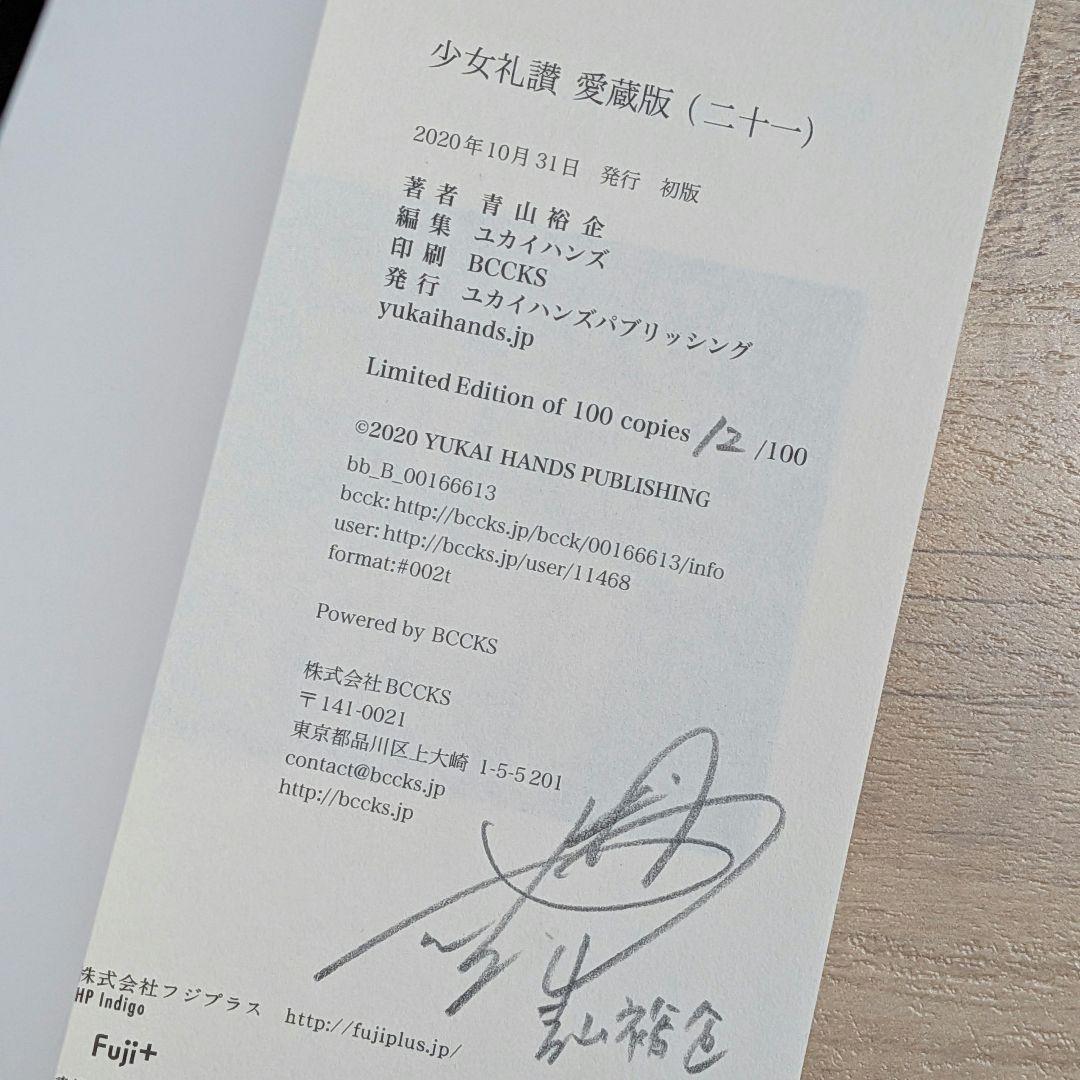 少女礼讃 愛蔵版 (二十一)
2020年10月31日 発行 初版
著者 青山裕企
編集 ユカイハンズ
印刷 BCCKS
発行 ユカイハンズパブリッシング
yukaihands.jp
Limited Edition of 100 copies 12 /100
©2020 YUKAI HANDS PUBLISHING
bb_B_00166613
bcck: http://bccks.jp/bcck/00166613/info
user: http://bccks.jp/user/11468
format:#002t
Powered by BCCKS
株式会社BCCKS
〒141-0021
東京都品川区上大崎 1-5-5 201
contact@bccks.jp
http://bccks.jp
青山裕企
株式会社フジプラス http://fujiplus.jp/
HP Indigo
Fuji+